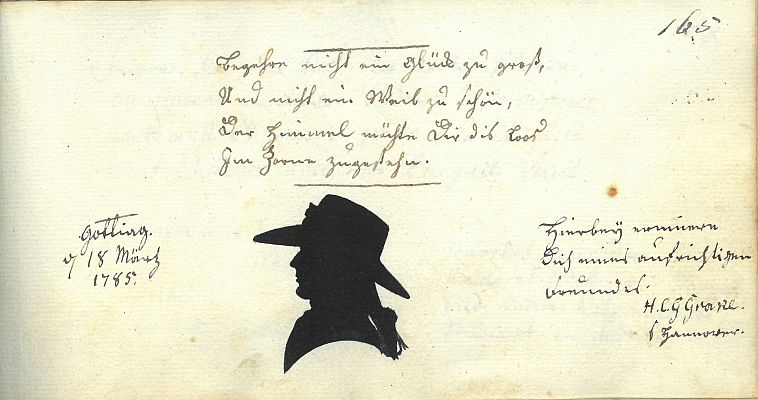 165
Begehre nicht ein Glück zu groß,
Und nicht ein Weib zu schön,
Der Himmel möchte Dir dis Loos
Im Zorne zugestehn.
Götting.
d 18 Märtz
1785.
Hierbey erinnere
Dich eines aufrichtigen
Freundes.
H. C. G.
Hannover.